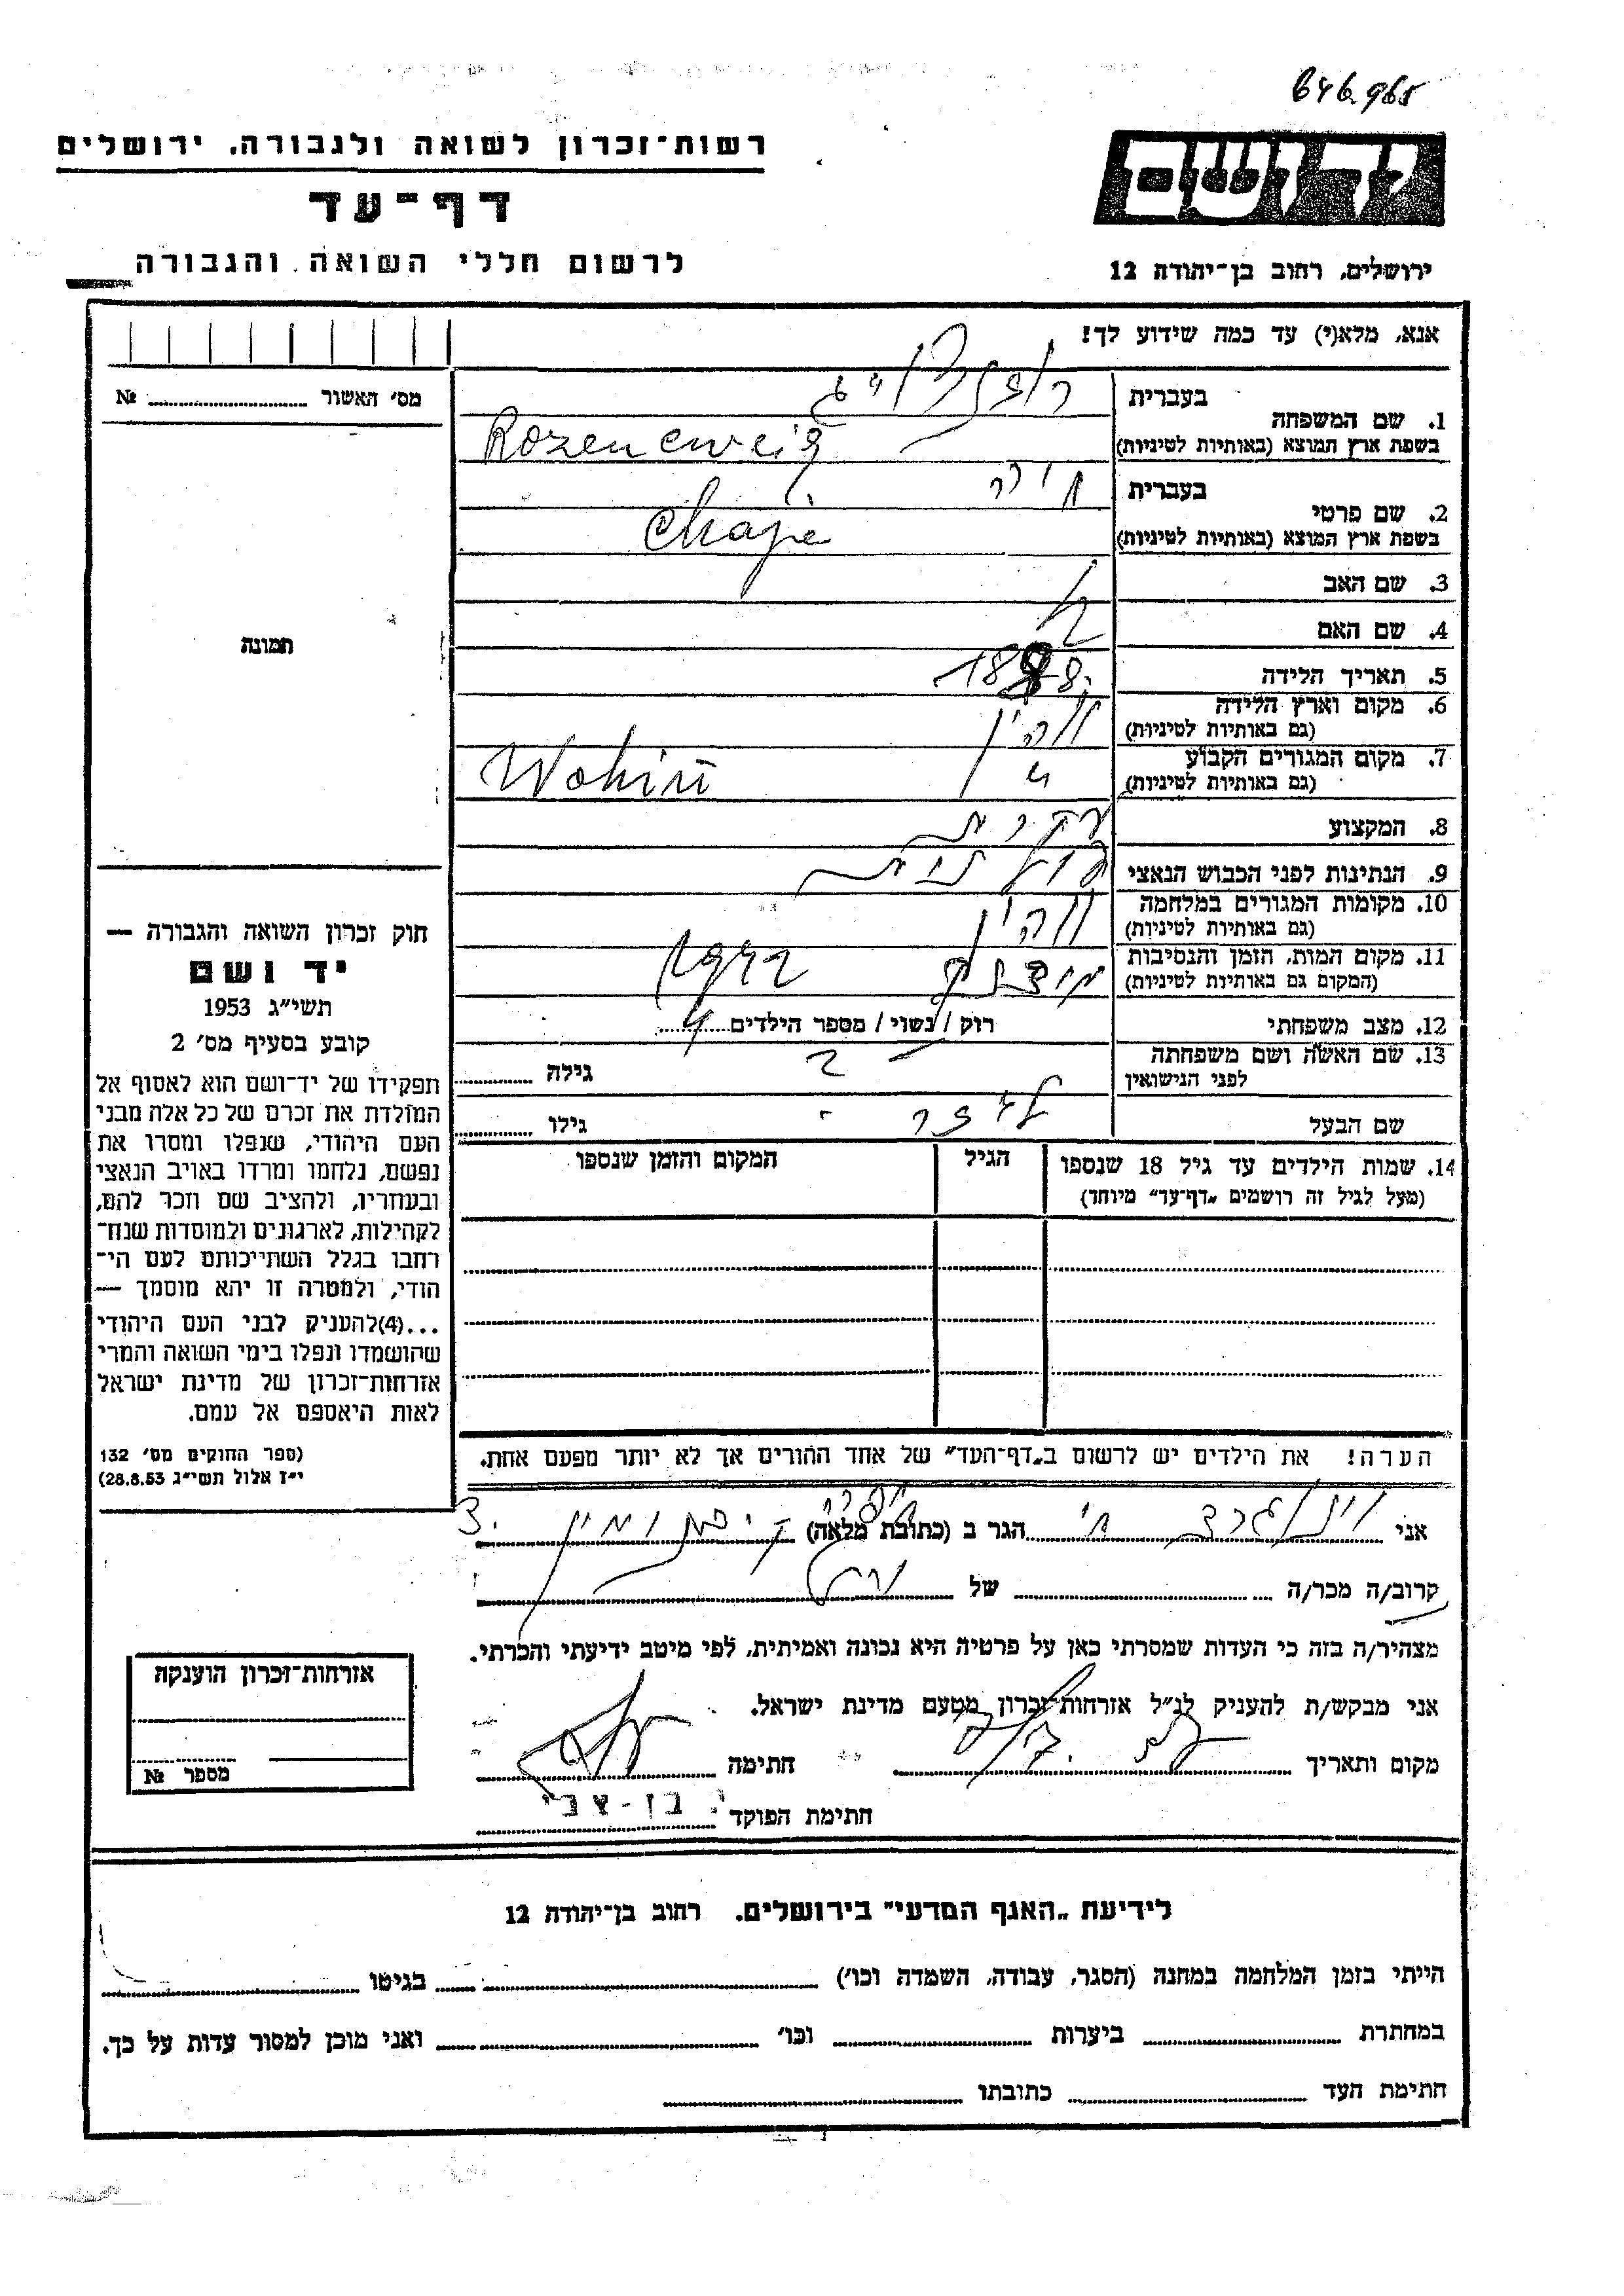 646965
רשות-זכרון לשואה ולגבורה, ירושלים
דף-עד
לרשום חללי השואה והגבורה
יד ושם
ירושלים, רחוב בן-יהודה 12
אנא, מלא(י) עד כמה שידוע לך!
מס' האשור № 
תמונה
חוק זכרון השואה והגבורה —
יד ושם
תשי"ג 1953
קובע בסעיף מס' 2
תפקידו של יד-ושם הוא לאסוף אל
המולדת את זכרם של כל אלה מבני
העם היהודי, שנפלו ומסרו את
נפשם, נלחמו ומרדו באויב הנאצי
ובעוזריו, ולהציב שם וזכר להם,
לקהילות, לארגונים ולמוסדות שנח-
רחבו בגלל השתייכותם לעם הי-
הודי, ולמטרה זו יהא מוסמך —
...(4)להעניק לבני העם היהודי
שהושמדו ונפלו בימי השואה והמרי
אזרחות-זכרון של מדינת ישראל
לאות היאספם אל עמם.
(ספר החוקים מס' 132
י"ז אלול תשי"ג 28.8.53)
בעברית רוזנצוייג
1. שם המשפחה
בשפת ארץ המוצא (באותיות לטיניות) Rozencweig
בעברית חיה
2. שם פרטי
בשפת ארץ המוצא (באותיות לטיניות) Chaje
3. שם האב
4. שם האם
5. תאריך הלידה 1888
6. מקום וארץ הלידה ווהין
(גם באותיות לטיניות)
7. מקום המגורים הקבוע " Wohiń
(גם באותיות לטיניות)
8. המקצוע עקרת
9. הנתינות לפני הכבוש הנאצי פולנית
10. מקומות המגורים במלחמה ווהין
(גם באותיות לטיניות)
11. מקום המות, הזמן והנסיבות 1942
(המקום גם באותיות לטיניות)
12. מצב משפחתי רוק / נשוי / מספר הילדים 4
13. שם האשה ושם משפחתה
לפני הנישואין גילה
שם הבעל גילו
14. שמות הילדים עד גיל 18 שנספו הגיל המקום והזמן שנספו
(מעל לגיל זה רושמים "דף-עד" מיוחד)
הערה! את הילדים יש לרשום ב"דף-העד" של אחד ההורים אך לא יותר מפעם אחת.
אני וינוגרד חי הגר ב (כתובת מלאה) חיפה
קרוב/ה מכר/ה של
מצהיר/ה בזה כי העדות שמסרתי כאן על פרטיה היא נכונה ואמיתית, לפי מיטב ידיעתי והכרתי.
אני מבקש/ת להעניק לנ"ל אזרחות-זכרון מטעם מדינת ישראל.
מקום ותאריך חתימה
חתימת הפוקד י. בן-צבי
אזרחות-זכרון הוענקה
מספר №
לידיעת "האגף המדעי" בירושלים, רחוב בן-יהודה 12
הייתי בזמן המלחמה במחנה (הסגר, עבודה, השמדה וכו') בגיטו
במחתרת ביערות וכו' ואני מוכן למסור עדות על כך.
חתימת העד כתובתו